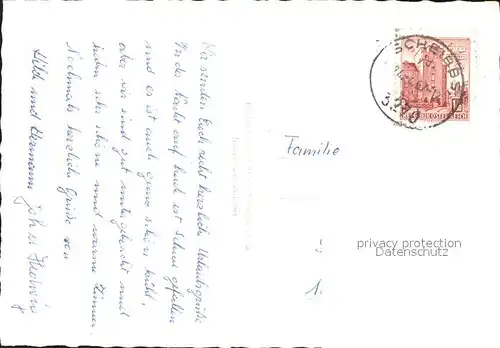 Wir senden Euch recht herzliche Urlaubsgrüße
In der Nacht auf heute ist Schnee gefallen
und es ist auch ganz schön kalt,
aber wir sind gut untergebracht und
haben sehr schöne und warme Zimmer.
Nochmals herzliche Grüße von
Hilde und Hermann
Familie
SCHEIBBS
3270
REPUBLIK ÖSTERREICH
privacy protection
Datenschutz
1.